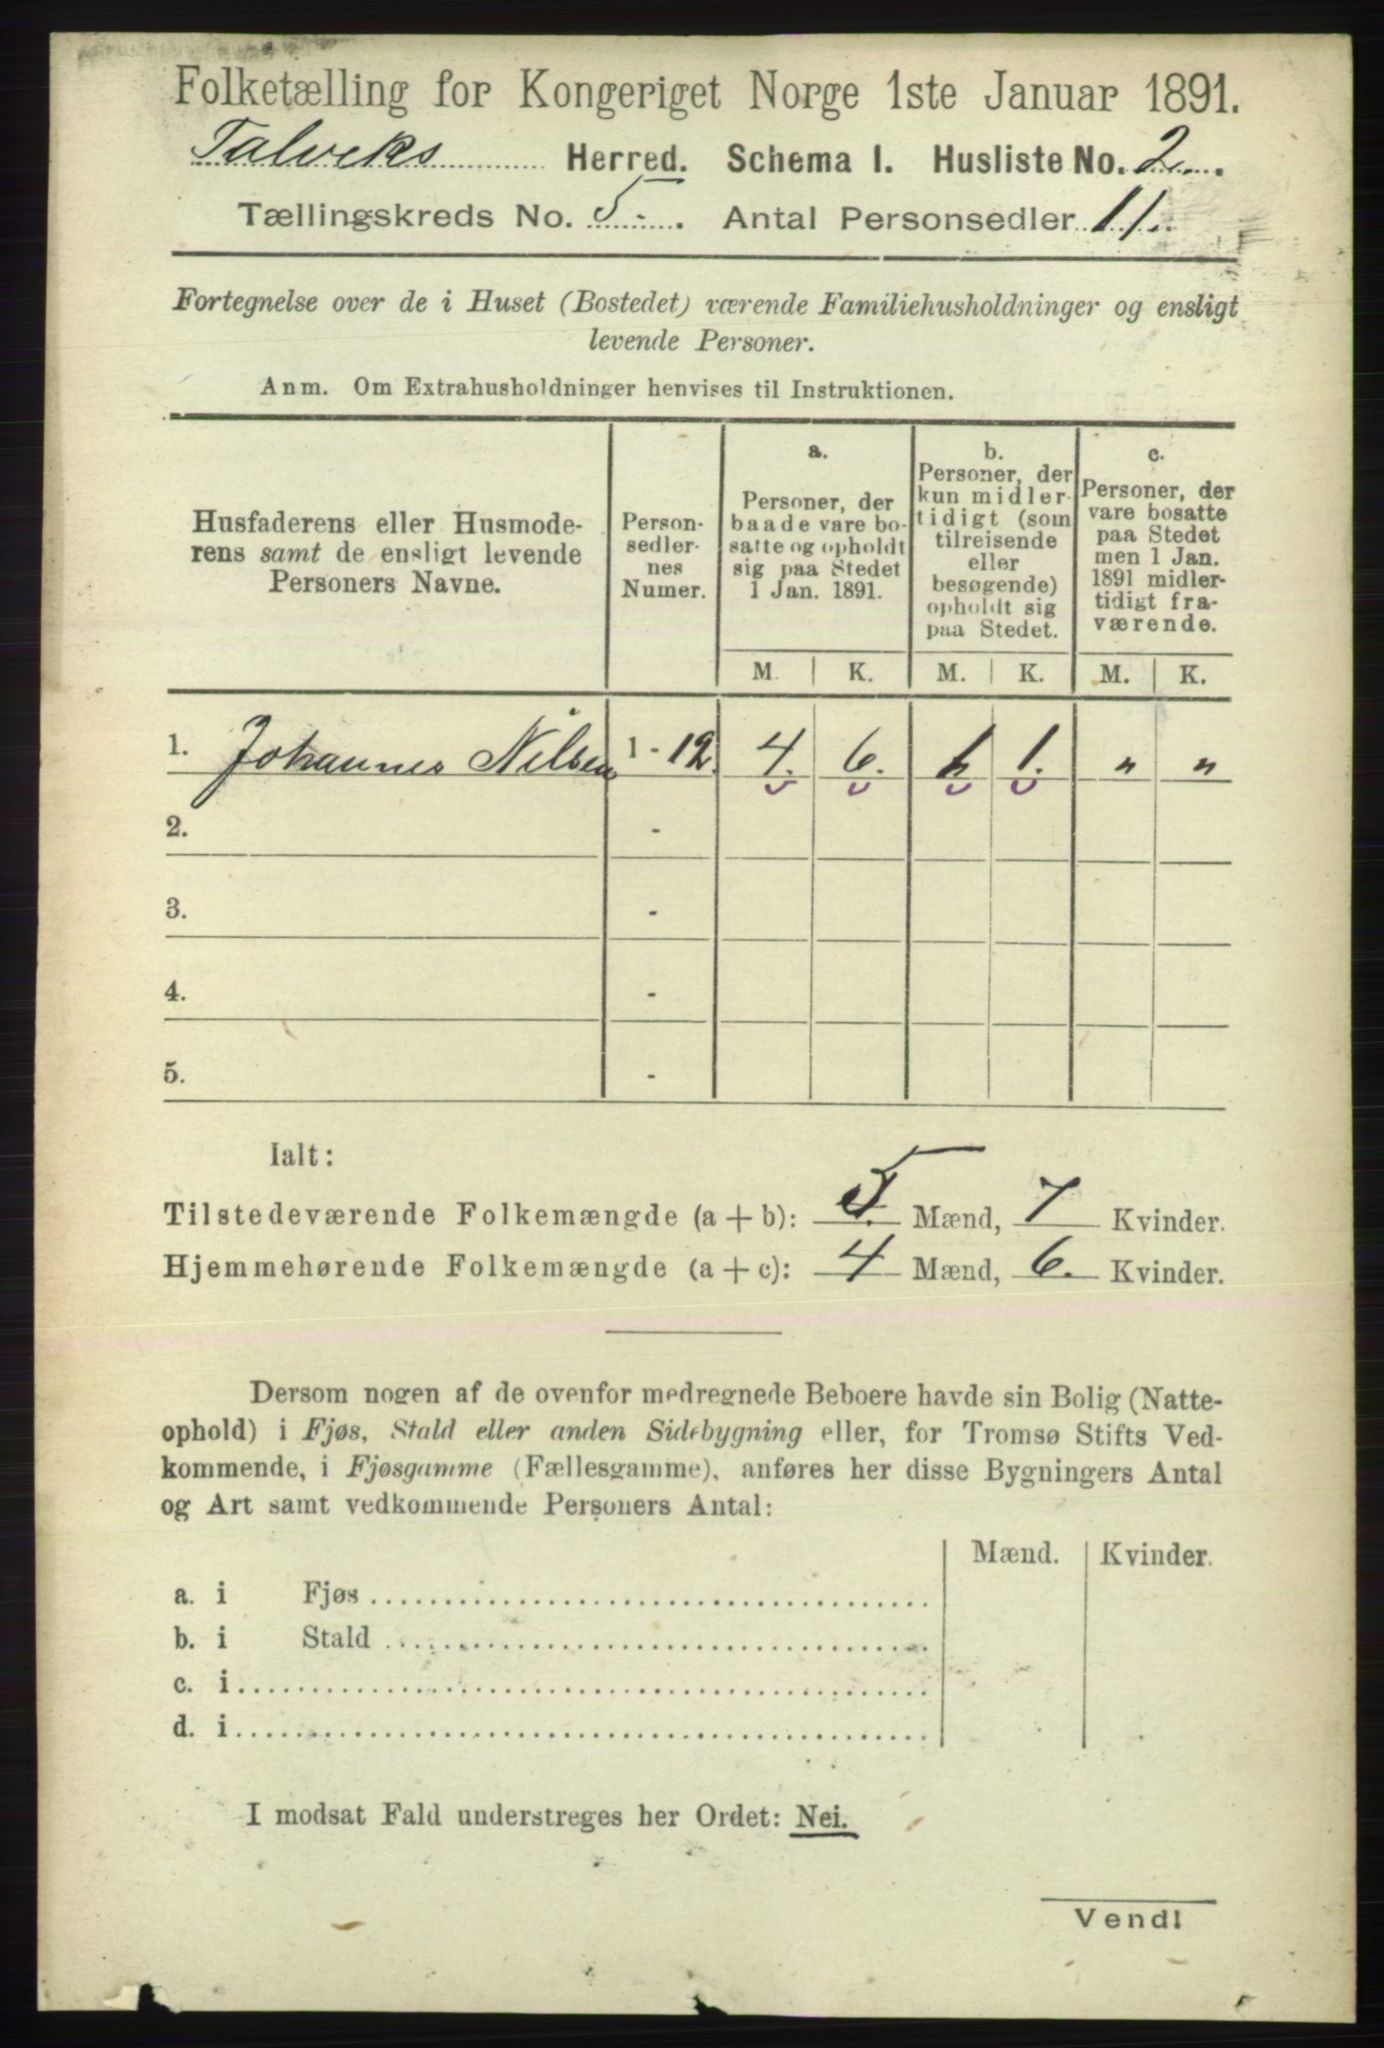 Folketælling for Kongeriget Norge 1ste Januar 1891.
Talviks Herred. Schema I. Husliste No. 2.
Tællingskreds No. 5. Antal Personsedler 11.
Fortegnelse over de i Huset (Bostedet) værende Familiehusholdninger og ensligt
levende Personer.
Anm. Om Extrahusholdninger henvises til Instruktionen.
Husfaderens eller Husmode-
rens samt de ensligt levende
Personers Navne.
Person-
sedler-
nes
Numer.
a.
Personer, der
baade vare bo-
satte og opholdt
sig paa Stedet
1 Jan. 1891.
b.
Personer, der
kun midler-
tidigt (som
tilreisende
eller
besøgende)
opholdt sig
paa Stedet.
c.
Personer, der
vare bosatte
paa Stedet
men 1 Jan.
1891 midler-
tidigt fra-
værende.
M. K. M. K. M. K.
1. Johannes Nilsen 1 - 12 4. 6. 1 1. " "
2. -
3. -
4. -
5. -
Ialt:
Tilstedeværende Folkemængde (a + b): 5. Mænd, 7 Kvinder.
Hjemmehørende Folkemængde (a + c): 4 Mænd, 6. Kvinder.
Dersom nogen af de ovenfor medregnede Beboere havde sin Bolig (Natte-
ophold) i Fjøs, Stald eller anden Sidebygning eller, for Tromsø Stifts Ved-
kommende, i Fjøsgamme (Fællesgamme), anføres her disse Bygningers Antal
og Art samt vedkommende Personers Antal:
Mænd. Kvinder.
a. i Fjøs
b. i Stald
c. i
d. i
I modsat Fald understreges her Ordet: Nei.
Vend!